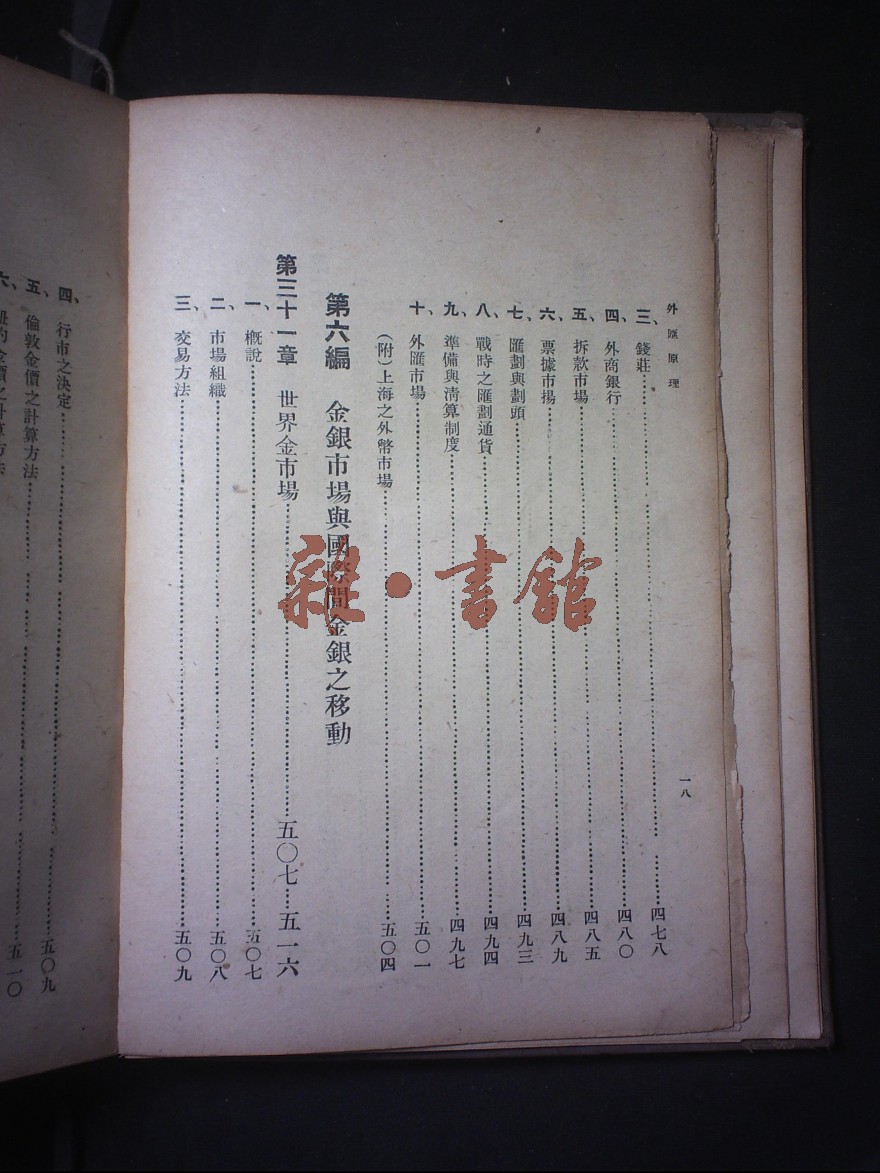 外匯原理
一八
三、錢莊……四七八
四、外商銀行……四八〇
五、拆款市場……四八五
六、票據市場……四八九
七、匯劃與劃頭……四九三
八、戰時之匯劃通貨……四九四
九、準備與清算制度……四九七
十、外匯市場……五〇一
(附)上海之外幣市場……五〇四
第六編 金銀市場與國際間金銀之移動
第三十一章 世界金市場……五〇七—五一六
一、概說……五〇七
二、市場組織……五〇八
三、交易方法……五〇九
四、行市之決定……五〇九
五、倫敦金價之計算方法……五一〇
六、紐約金價之計算方法
雜·書館